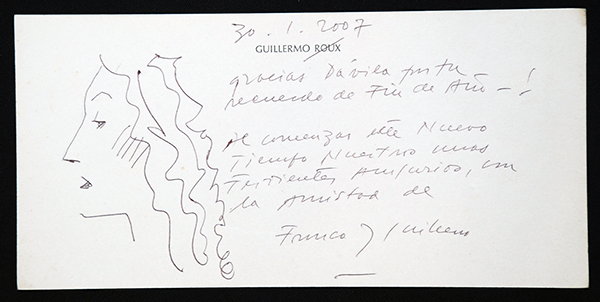 30.1.2007
GUILLERMO ROUX
gracias Dávila por tu
recuerdo de Fin de Año —!
Al comenzar este Nuevo
Tiempo Nuestros unos
Augurios, con
la Amistad de
Franca y Guillermo